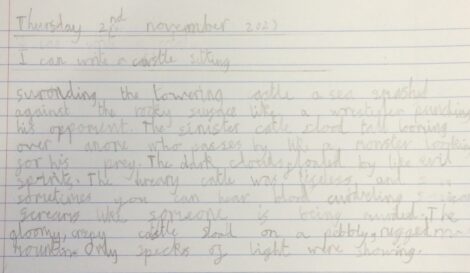 Thursday 2nd november 2023
I can write a castle sitting
surronding the towering catle a sea smashed
against the rocky surface like a wrestler punching
his opponent. The sinister catle stood tall looming
over anone who passes by like a monster looking
for his prey. The dark clouds floated by like evil
spirits. The weary catle was lifeless, and
sometimes you can hear blood curdeling
screams like someone is being murded. The
gloomy, crepy castle stood on a pebbly, rugged
mountin. Only specks of light were showing.